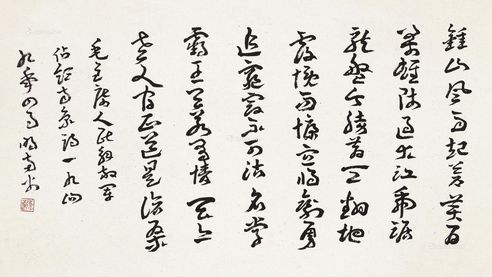 鍾山風雨起蒼黃百
萬雄師過大江虎踞
龍盤今勝昔天翻地
覆慨而慷宜將剩勇
追窮寇不可沽名學
霸王天若有情天亦
老人間正道是滄桑
毛主席人民解放軍
佔領南京詩一九四
九年四月